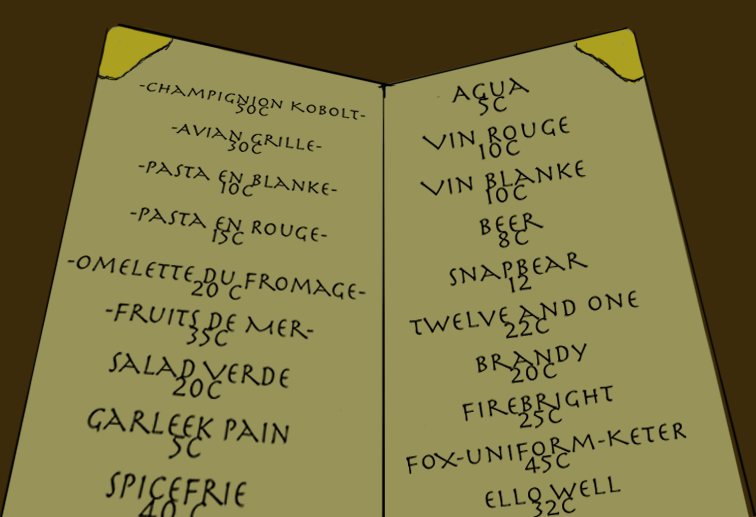 -CHAMPIGNION KOBOLT-
50C
-AVIAN GRILLE-
30C
-PASTA EN BLANKE-
10C
-PASTA EN ROUGE-
15C
-OMELETTE DU FROMAGE-
20 C
-FRUITS DE MER-
35C
SALAD VERDE
20C
GARLEEK PAIN
5C
SPICEFRIE
40 C
AGUA
5C
VIN ROUGE
10C
VIN BLANKE
10C
BEER
8C
SNAPBEAR
12
TWELVE AND ONE
22C
BRANDY
20C
FIREBRIGHT
25C
FOX-UNIFORM-KETER
45C
ELLO WELL
32C